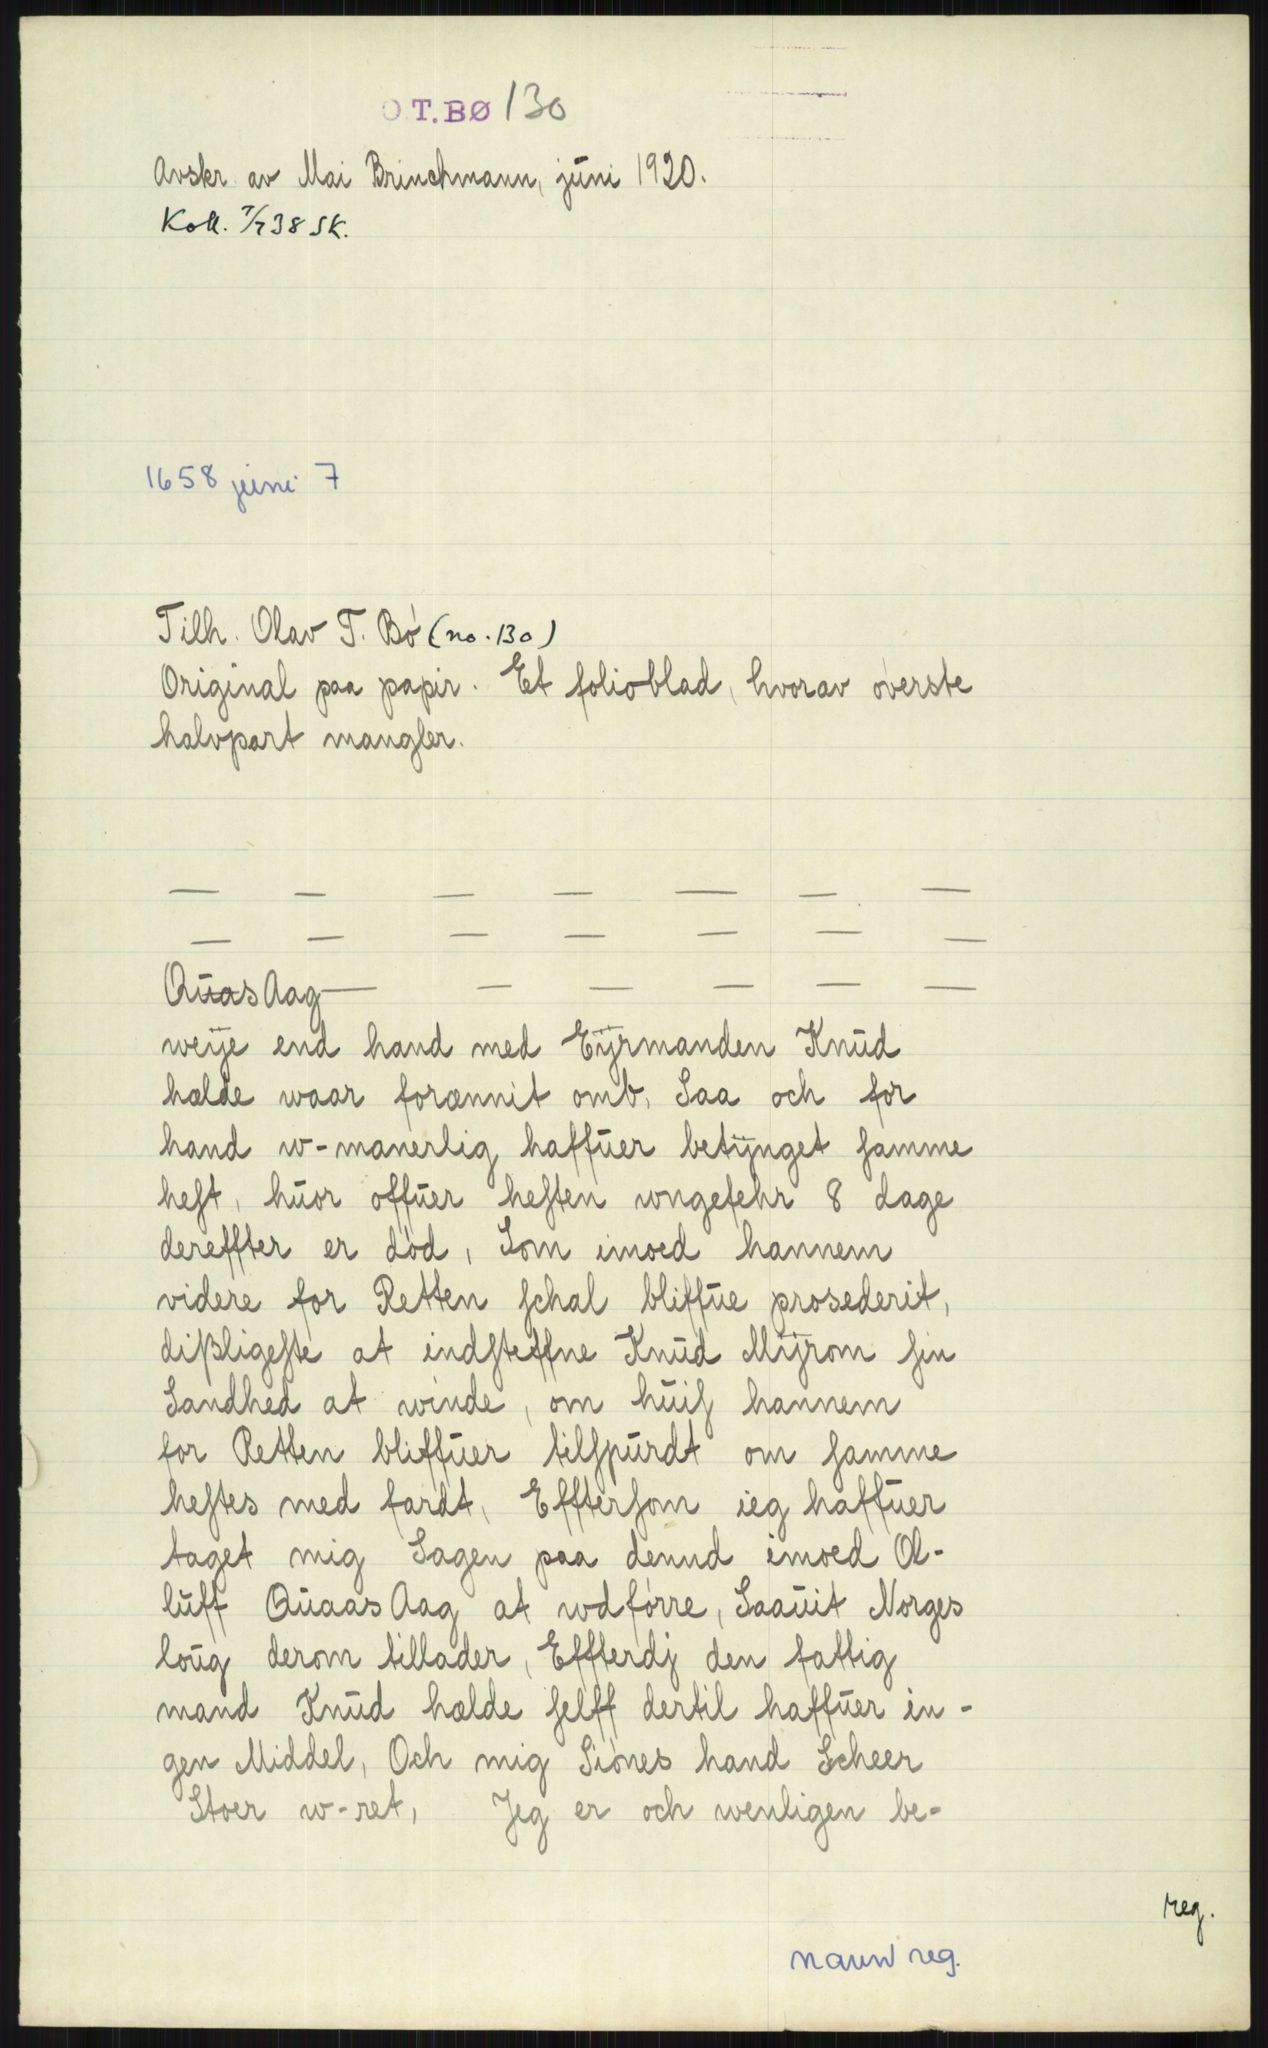 O T. BØ 130
Avskr. av Mai Brinchmann, juni 1920.
Koll. 7/7 38 SK.
1658 juni 7
Tilh. Olav T. Bö (no. 130)
Original paa papir. Et folioblad, hvorav överste
halvpart mangler.
— — — — — — —
— — — — — — —
QuasAag — — — — — —
weÿe end hand med Eÿrmanden Knud
hælde waar forænnit omb, Saa och for
hand w-manerlig haffuer betÿnget samme
hest, huor offuer hesten wngefehr 8 dage
dereffter er död, Som imoed hannem
videre for Retten schal bliffue prosederit,
dißligeste at indsteffne Knud Mÿrom sin
Sandhed at winde, om huis hannem
for Retten bliffuer tilspurdt om samme
hestes med fardt, Efftersom ieg haffuer
taget mig Sagen paa dennd imoed Ol-
luff QuaasAag at wdförre, Saauit Norges
loug derom tillader, Effterdj den fattig
mand Knud hælde selff dertil haffuer in-
gen Middel, Och mig Siönes hand Scheer
Stoer w-ret, Jeg er och wenligen be-
reg.
navn reg.